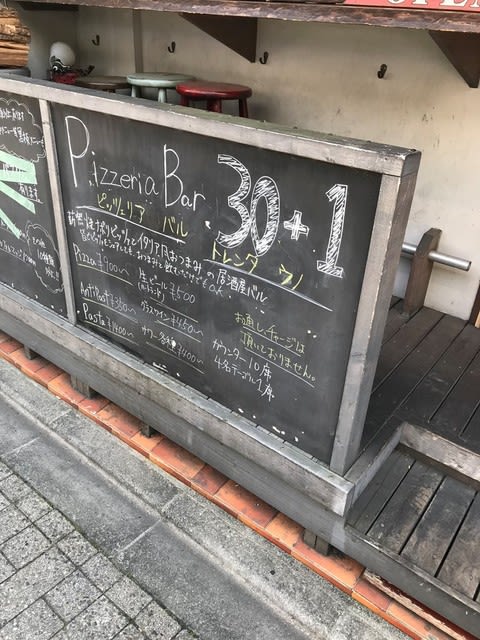 Pizzeria Bar 30+1
ピッツェリア バル トレンタ ウノ
薪窯焼ナポリピッツァとイタリア風おつまみの居酒屋バル
Pizza ¥900〜 生ビール ¥500
Antipast ¥350〜 グラスワイン ¥450〜
Pasta ¥1400〜 サワー各種 ¥400〜
お通し、チャージは
頂いておりません。
カウンター10席
4名テーブル1席
OPEN